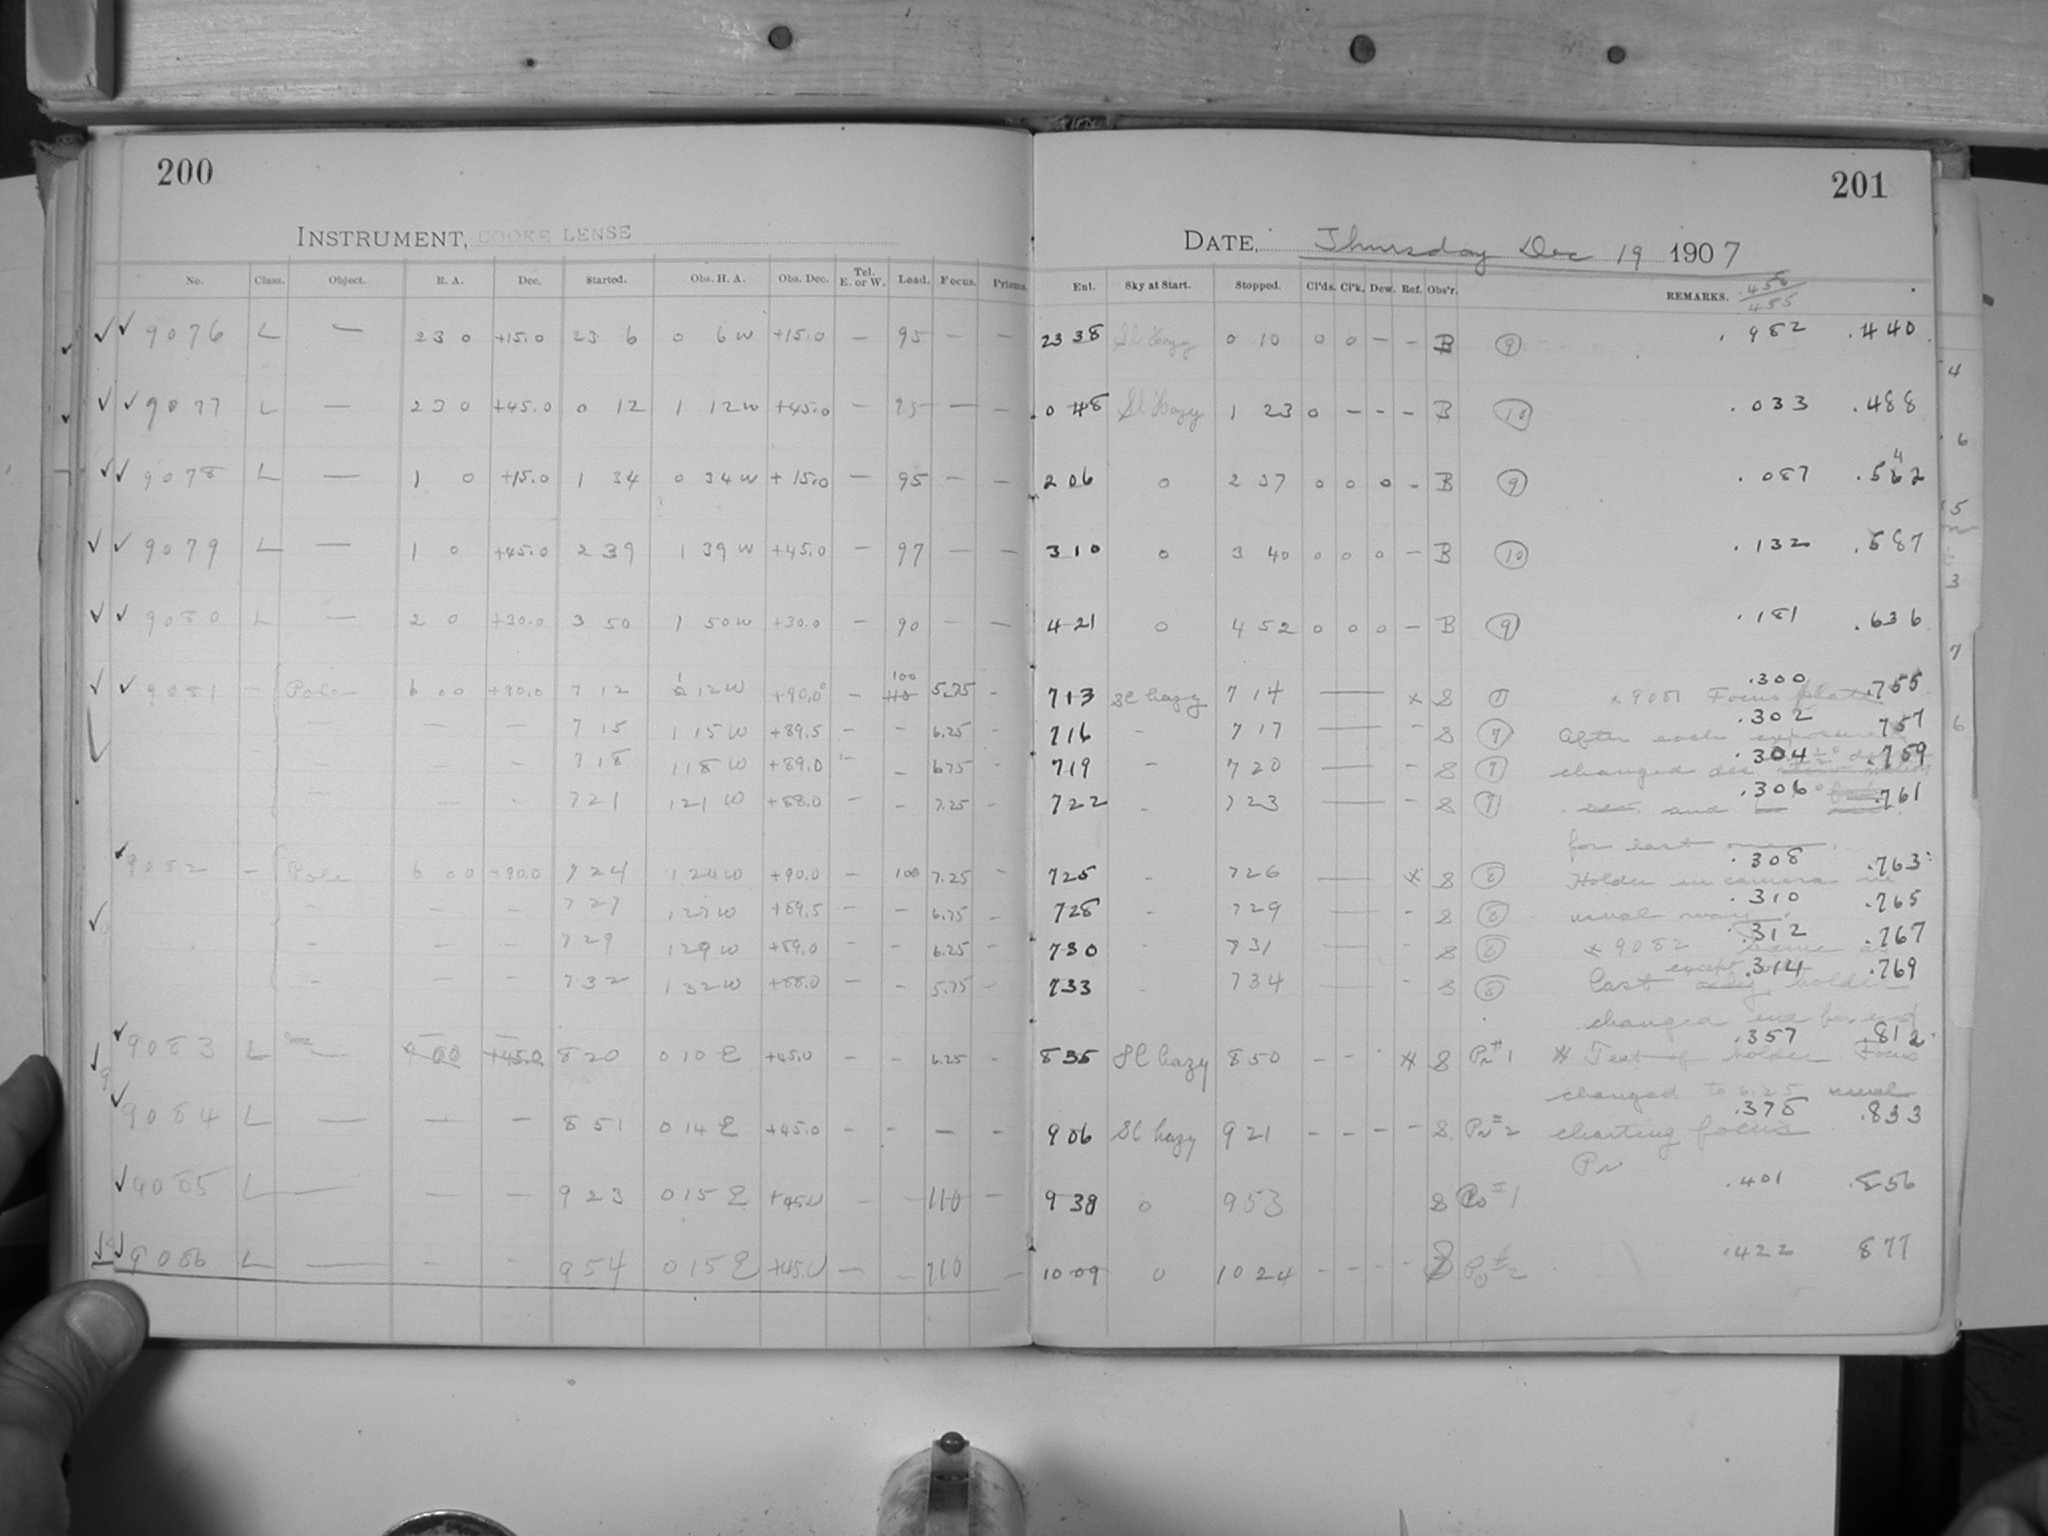 200
INSTRUMENT, COOKE LENSE
No. Class. Object. R. A. Dec. Started. Obs. H. A. Obs. Dec. Tel. E. or W. Load. Focus. Prisms.
✓✓ 9076 L — 23 0 +15.0 23 6 0 6 W +15.0 — 95 — —
✓✓ 9077 L — 23 0 +45.0 0 12 1 12 W +45.0 — 95 — —
✓✓ 9078 L — 1 0 +15.0 1 34 0 34 W +15.0 — 95 — —
✓✓ 9079 L — 1 0 +45.0 2 39 1 39 W +45.0 — 97 — —
✓✓ 9080 L — 2 0 +30.0 3 50 1 50 W +30.0 — 90 — —
✓✓ 9081 — Pole 6 00 +90.0 7 12 1 12 W +90.0 — 100 5.75 -
— — — 7 15 1 15 W +89.5 — — 6.25 -
— — — 7 18 1 18 W +89.0 — 6.75 -
— — - 7 21 1 21 W +88.0 — - 7.25 -
✓ 9082 — Pole 6 00 +90.0 7 24 1 24 W +90.0 — 100 7.25 -
- — — 7 27 1 27 W +89.5 — — 6.75 -
- — — 7 29 1 29 W +89.0 — - 6.25 -
- — - 7 32 1 32 W +88.0 — — 5.75 -
✓ 9083 L — +45.0 8 20 0 10 E +45.0 6.25 -
✓ 9084 L — — — 8 51 0 14 E +45.0 - - — -
✓ 9085 L — — — 9 23 0 15 E +45.0 — 110 —
✓ 9086 L — - - 9 54 0 15 E +45.0 — 110 —
201
DATE, Thursday Dec 19 1907
Enl. Sky at Start. Stopped. Cl'ds. Cl'k. Dew. Ref. Obs'r. REMARKS. .455
23 38 Sl Hazy 0 10 0 0 — - B 9 .982 .440
0 48 Sl Hazy 1 23 0 - - - B 10 .033 .488
2 06 0 2 37 0 0 0 - B 9 .087 .542
3 10 0 3 40 0 0 0 — B 10 .132 .587
4 21 0 4 52 0 0 0 — B 9 .181 .636
7 13 Sl hazy 7 14 — x S 7 .300 .755
x 9081 Focus plate
7 16 - 7 17 — - S 7 .302 .757
After each exposure
7 19 - 7 20 — - S 7 .304 .759
changed dec
7 22 - 7 23 — - S 7 .306 .761
and
for last
7 25 - 7 26 — x S 8 .308 .763
Holder in camera in
7 28 - 7 29 — - S 8 .310 .765
usual way.
7 30 - 7 31 — - S 8 .312 .767
x 9082 Same as
7 33 - 7 34 — - S 8 .314 .769
last except holder
changed end for end
8 35 Sl hazy 8 50 - - x S Pr #1 .357 .812
x Test of holder. Focus
changed to 6.25 usual
9 06 Sl hazy 9 21 - - - - S Pr #2 .378 .833
charting focus
Pr
9 38 0 9 53 S #1 .401 .856
10 09 0 10 24 - - - - S #2 .422 877